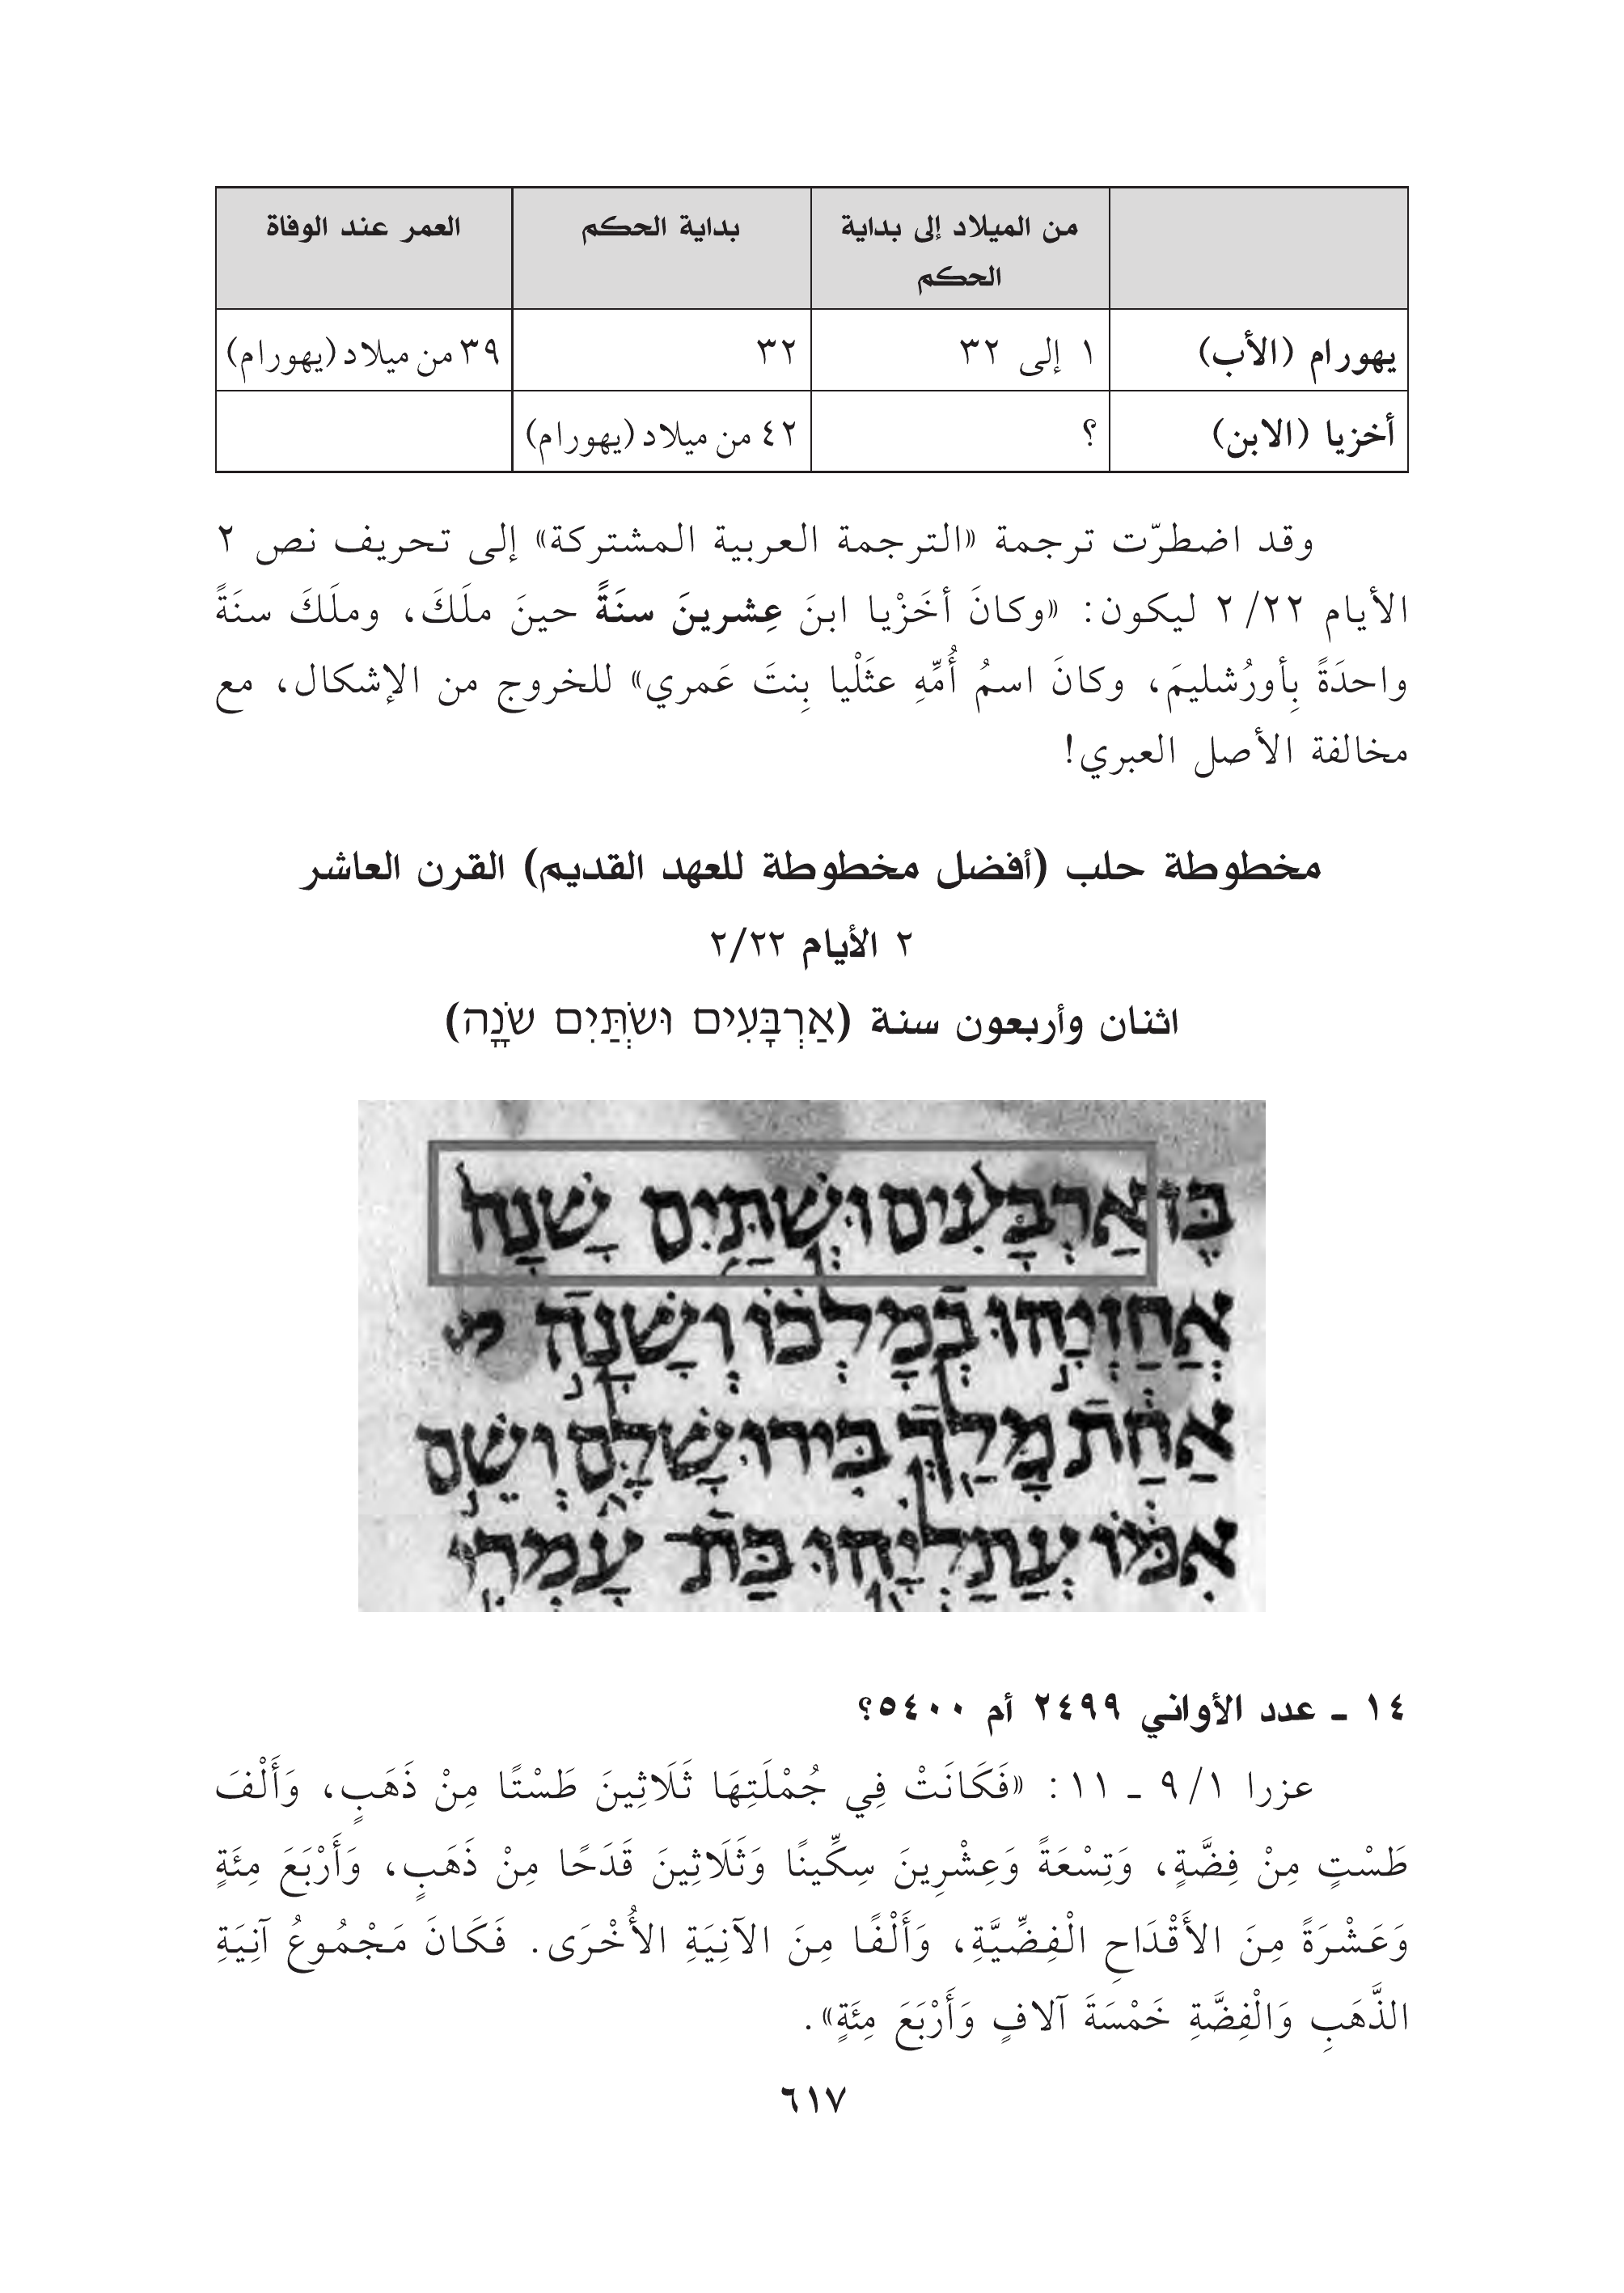 من الميلاد إلى بداية الحكم	بداية الحكم	العمر عند الوفاة
يهورام (الأب)	١ إلى ٣٢	٣٢	٣٩ من ميلاد (يهورام)
أخزيا (الابن)	؟	٤٢ من ميلاد (يهورام)
وقد اضطرّت ترجمة «الترجمة العربية المشتركة» إلى تحريف نص ٢
الأيام ٢/٢٢ ليكون: «وكانَ أخَزْيا ابنَ عِشرينَ سنَةً حينَ ملَكَ، وملَكَ سنَةً
واحدَةً بِأورُشليمَ، وكانَ اسمُ أُمِّهِ عثَلْيا بِنتَ عَمري» للخروج من الإشكال، مع
مخالفة الأصل العبري!
مخطوطة حلب (أفضل مخطوطة للعهد القديم) القرن العاشر
٢ الأيام ٢/٢٢
اثنان وأربعون سنة (אַרְבָּעִים וּשְׂתַּיִם שָׂנָה)
בֶּן אַרְבָּעִים וּשְׁתַּיִם שָׁנָה
אֲחַזְיָהוּ בְמָלְכוֹ וְשָׁנָה
אַחַת מָלַךְ בִּירוּשָׁלָם וְשֵׁם
אִמּוֹ עֲתַלְיָהוּ בַּת־ עָמְרִי
١٤ ـ عدد الأواني ٢٤٩٩ أم ٥٤٠٠؟
عزرا ٩/١ ـ ١١: «فَكَانَتْ فِي جُمْلَتِهَا ثَلَاثِينَ طَسْتًا مِنْ ذَهَبٍ، وَأَلْفَ
طَسْتٍ مِنْ فِضَّةٍ، وَتِسْعَةً وَعِشْرِينَ سِكِّينًا وَثَلَاثِينَ قَدَحًا مِنْ ذَهَبٍ، وَأَرْبَعَ مِئَةٍ
وَعَشْرَةً مِنَ الأَقْدَاحِ الْفِضِّيَّةِ، وَأَلْفًا مِنَ الآنِيَةِ الأُخْرَى. فَكَانَ مَجْمُوعُ آنِيَةِ
الذَّهَبِ وَالْفِضَّةِ خَمْسَةَ آلافٍ وَأَرْبَعَ مِئَةٍ».
٦١٧